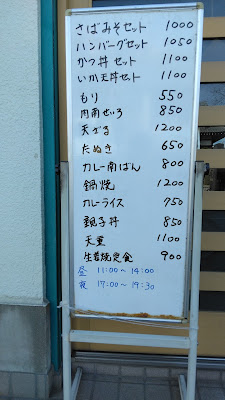 さばみそセット 1000
ハンバーグセット 1050
かつ丼セット 1100
いか天丼セット 1100
もり 550
肉南せいろ 850
天ざる 1200
たぬき 650
カレー南ばん 800
鍋焼 1200
カレーライス 750
親子丼 850
天重 1100
生姜焼定食 900
昼 11:00~14:00
夜 17:00~19:30